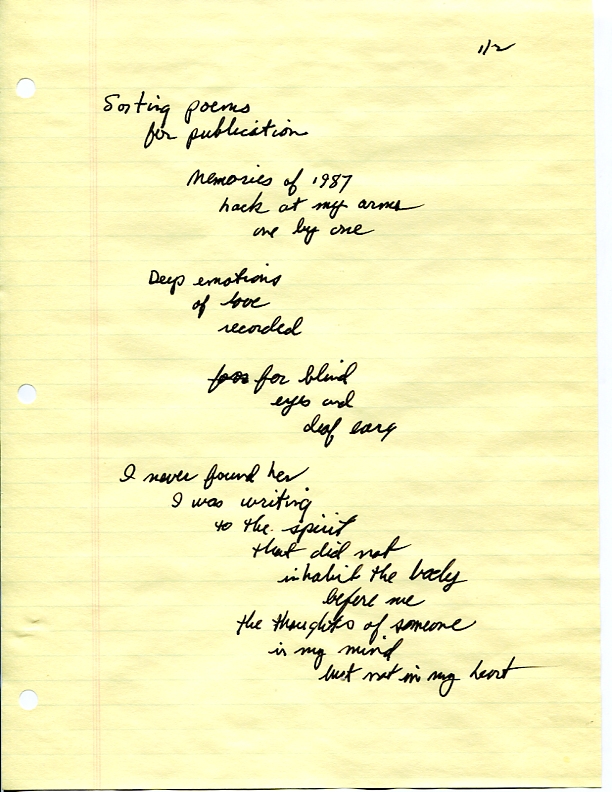 1/2
Sorting poems
for publication
Memories of 1987
hack at my arms
one by one
Deep emotions
of love
recorded
for blind
eyes and
deaf ears
I never found her
I was writing
to the spirit
that did not
inhabit the body
before me
the thoughts of someone
in my mind
but not in my heart